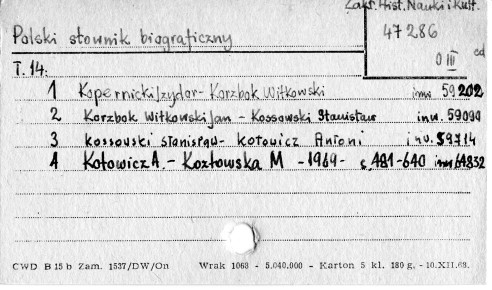 Zakł. Hist. Nauki i Kult.
Polski słownik biograficzny
47286
0 III cd
T. 14:
1 Kopernicki Izydor - Korzbok Witkowski inw 59202
2 Korzbok Witkowski Jan - Kossowski Stanisław inw. 59090
3 Kossowski Stanisław - Kotowicz Antoni inw. 59714
4 Kotowicz A. - Kozłowska M - 1969 - s. 481-640 inw 61832
CWD B 15 b Zam. 1537/DW/On Wrak 1068 - 5.040.000 - Karton 5 kl. 180 g. - 10.XII.68.